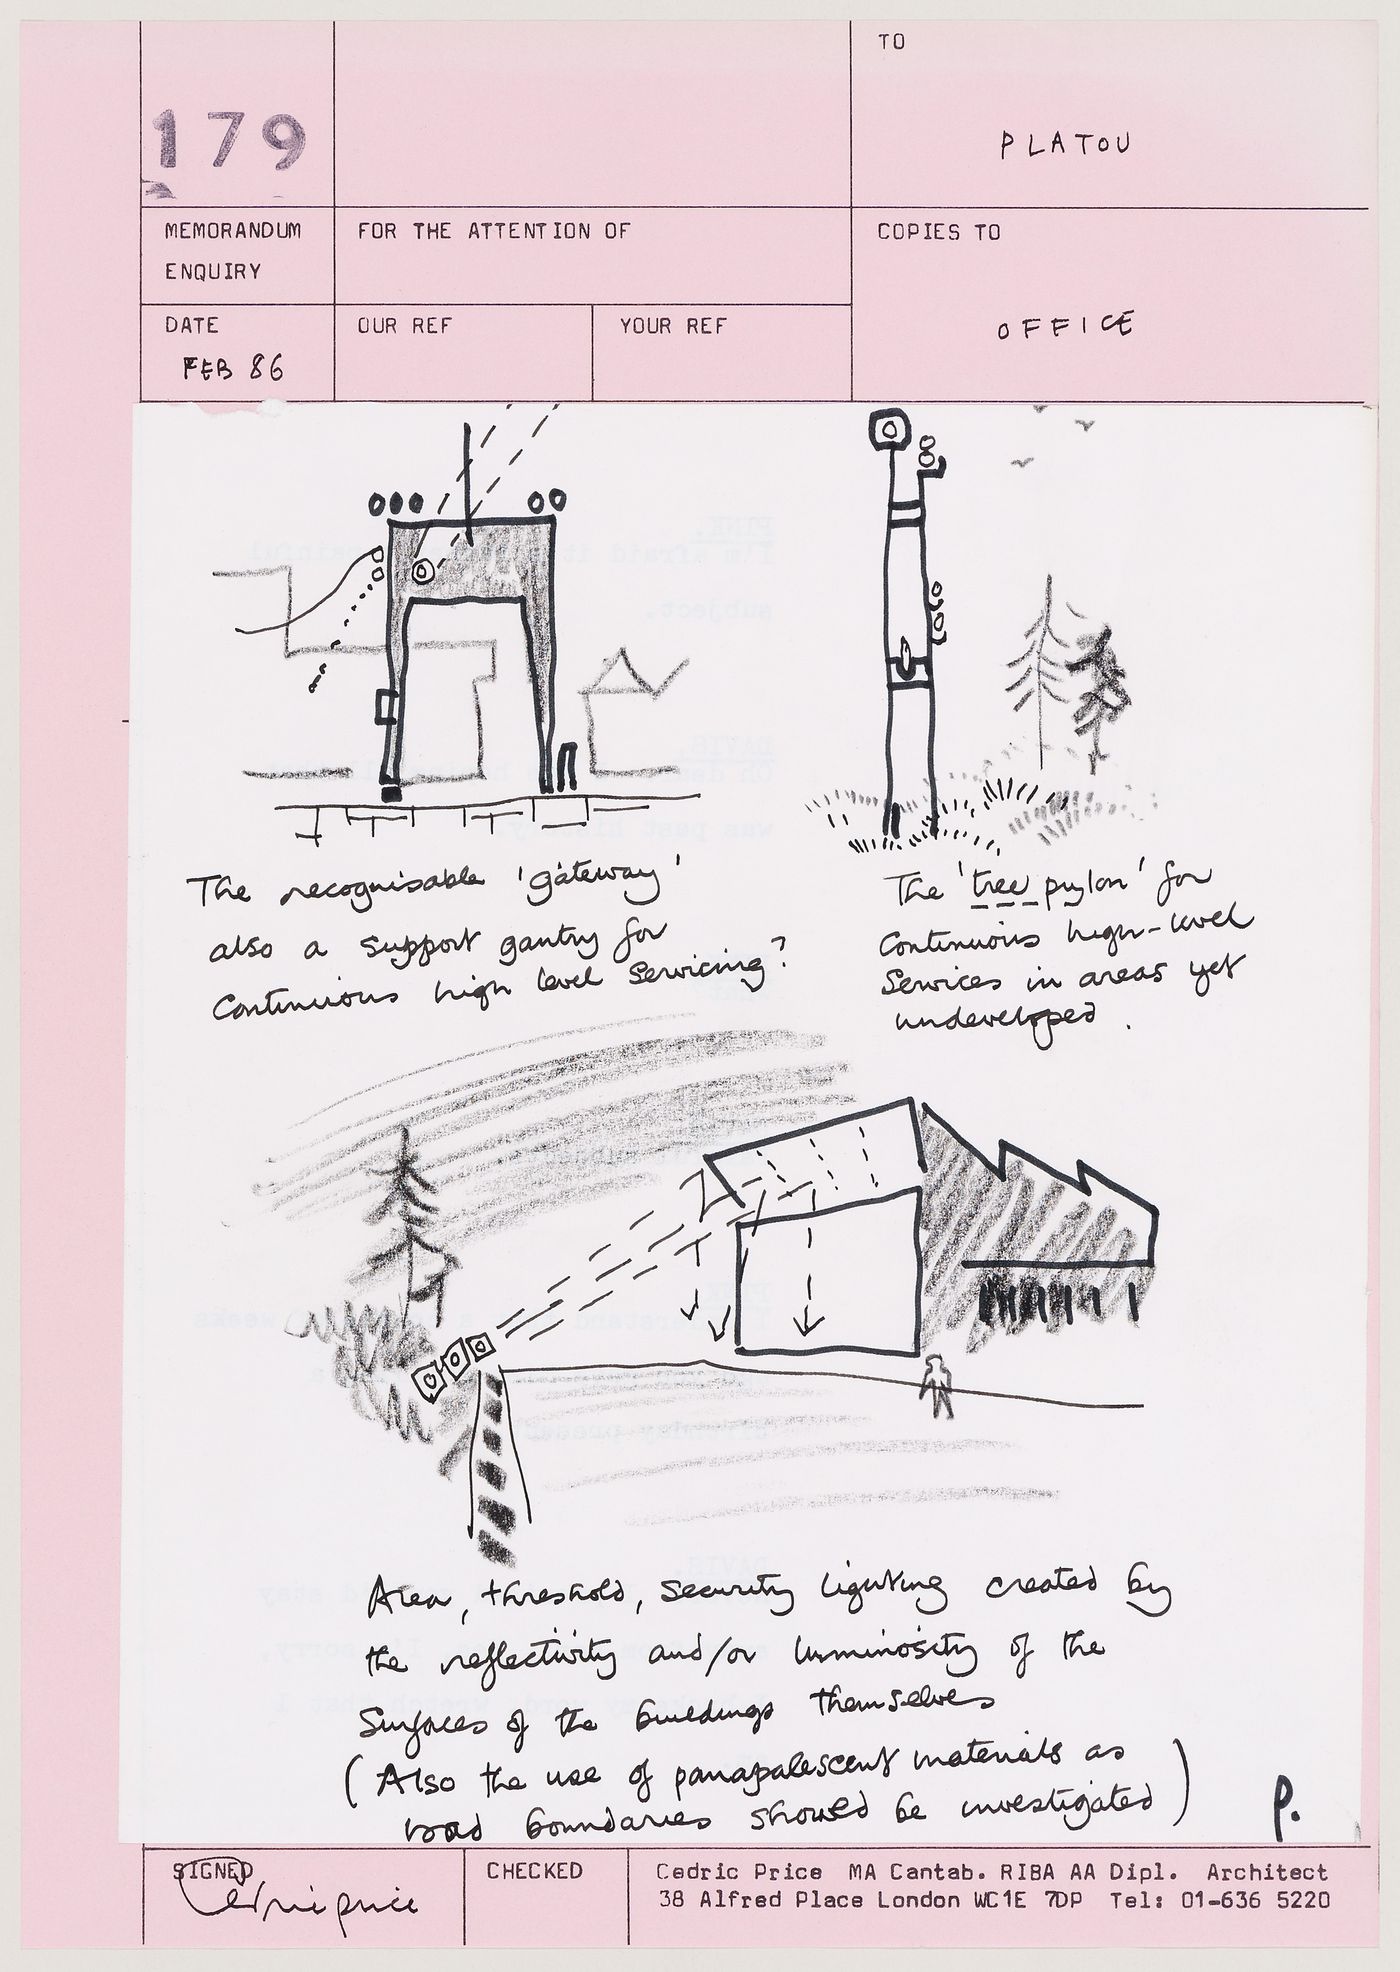 TO
179
PLATOU
MEMORANDUM
ENQUIRY
FOR THE ATTENTION OF
COPIES TO
OFFICE
DATE
FEB 86
OUR REF
YOUR REF
The recognisable 'gateway'
also a support gantry for
Continuous high level Servicing?
The 'tree pylon' for
Continuous high-level
Services in areas yet
undeveloped.
Area, threshold, security lighting created by
the reflectivity and/or luminosity of the
Surfaces of the buildings themselves
(Also the use of panapalescent materials as
road boundaries should be investigated)
P.
SIGNED
Cedric Price
CHECKED
Cedric Price MA Cantab. RIBA AA Dipl. Architect
38 Alfred Place London WC1E 7DP Tel: 01-636 5220